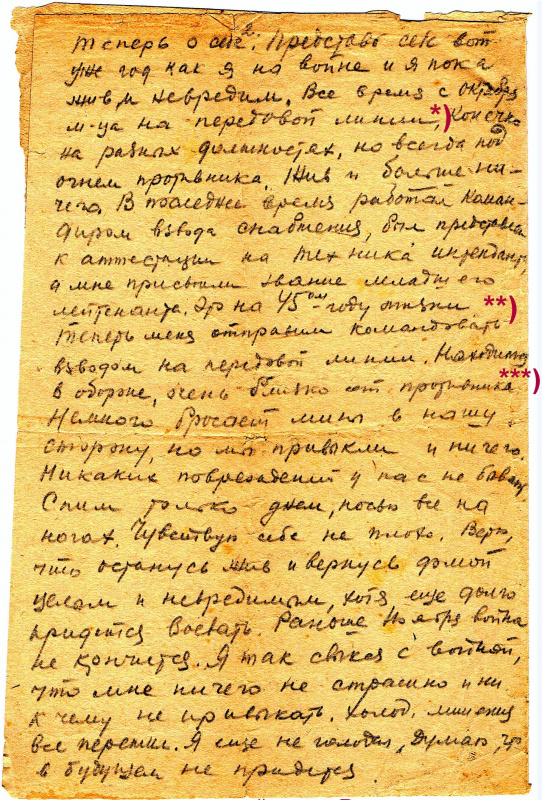 Теперь о себе. Представь себе вот
уж год как я на войне и я пока
жив и невредим. Все время с октября
м-ца на передовой линии, *) конечно
на разных должностях, но всегда под
огнем противника. Жив и больше ни-
чего. В последнее время работал коман-
диром взвода снабжения, был представлен
к аттестации на техника интенданта,
а мне присвоили звание младшего
лейтенанта. Это на 45ом году жизни **)
Теперь меня отправили командовать
взводом на передовой линии. Находимся
в обороне, очень близко от противника. ***)
Немного бросает мины в нашу
сторону, но мы привыкли и ничего.
Никаких повреждений у нас не бывает
Спим только днем, ночью все на
ногах. Чувствую себя не плохо. Верю,
что останусь жив и вернусь домой
целым и невредимым, хотя еще долго
придется воевать. Раньше Ноября война
не кончится. Я так свыкся с войной,
что мне ничего не страшно и ни
к чему не привыкать. Холод, лишения
все пережил. Я еще не голодал, думаю, что
в будущем не придется.